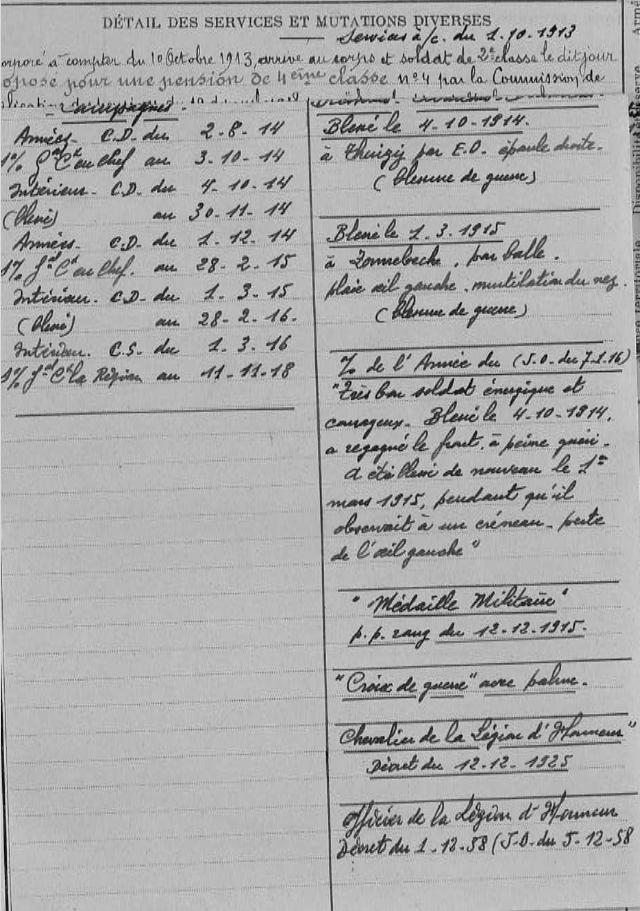 DÉTAIL DES SERVICES ET MUTATIONS DIVERSES
Services à/c. du 1.10.1913
orporé à compter du 10 Octobre 1913, arrivé au corps et soldat de 2e classe le dit jour
oposé pour une pension de 4ème classe n°4 par la Commission de
Campagnes.
Armées. C.D. du 2-8-14
1% Gal Ct en chef au 3-10-14
Intérieur. C.D. du 4-10-14
(blessé) au 30-11-14
Armées C.D. du 1.12.14
1% Gal Ct en Chef. au 28-2-15
Intérieur. C.D. du 1.3.15
(blessé) au 28-2-16.
Intérieur. C.S. du 1.3.16
1% Gal Ct la Région au 11-11-18
Blessé le 4-10-1914.
à Thuizy par E.O. épaule droite.
(blessure de guerre)
Blessé le 1.3.1915
à Zonnebecke, par balle.
plaie œil gauche. mutilation du nez.
(blessure de guerre)
% de l'Armée du (J.O. du 7.1.16)
"Très bon soldat énergique et
courageux. Blessé le 4-10-1914,
a regagné le front, à peine guéri.
A été blessé de nouveau le 1er
mars 1915, pendant qu'il
observait à un créneau. perte
de l'œil gauche"
"Médaille Militaire"
p.p. rang du 12-12-1915.
"Croix de guerre" avec palme.
Chevalier de la Légion d'Honneur"
Décret du 12-12-1925
Officier de la Légion d'Honneur
Décret du 1-12-58 (J.O. du 5-12-58